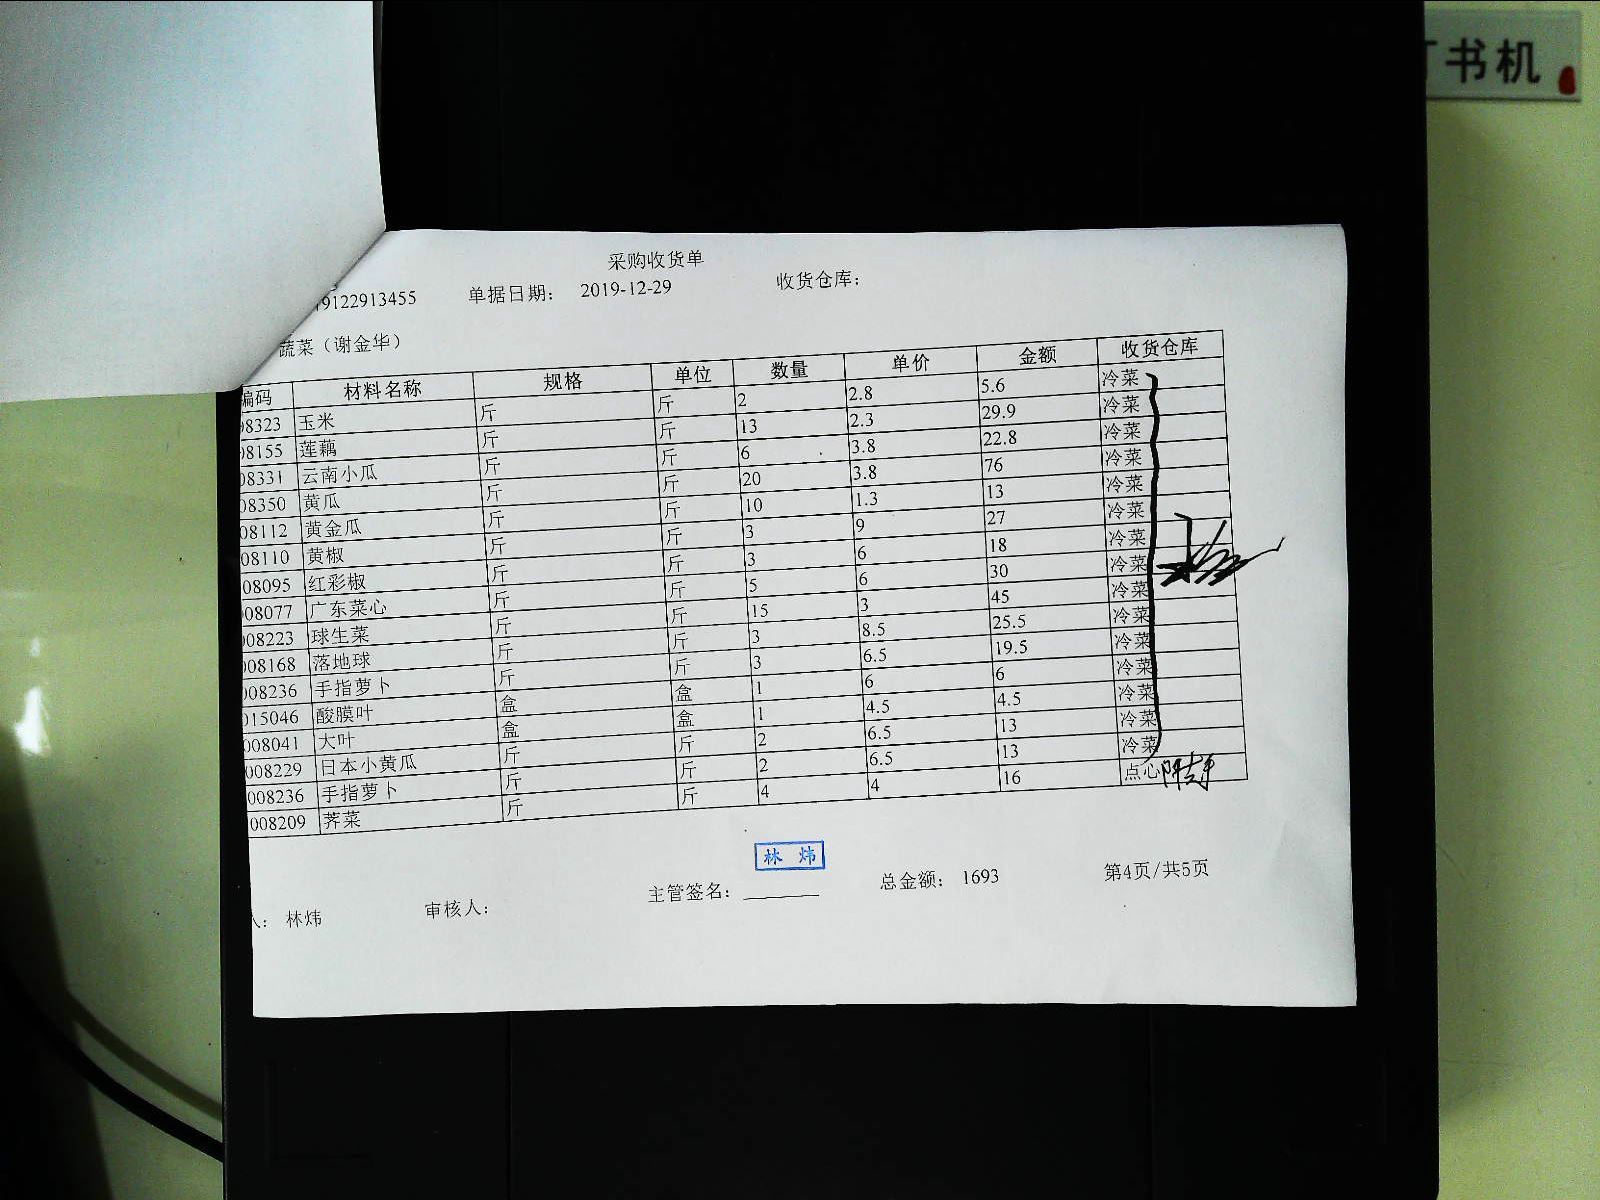 书机
采购收货单
19122913455 单据日期： 2019-12-29 收货仓库：
蔬菜（谢金华）
编码 材料名称 规格 单位 数量 单价 金额 收货仓库
08323 玉米 斤 斤 2 2.8 5.6 冷菜
08155 莲藕 斤 斤 13 2.3 29.9 冷菜
08331 云南小瓜 斤 斤 6 3.8 22.8 冷菜
08350 黄瓜 斤 斤 20 3.8 76 冷菜
08112 黄金瓜 斤 斤 10 1.3 13 冷菜
08110 黄椒 斤 斤 3 9 27 冷菜
08095 红彩椒 斤 斤 3 6 18 冷菜
008077 广东菜心 斤 斤 5 6 30 冷菜
008223 球生菜 斤 斤 15 3 45 冷菜
008168 落地球 斤 斤 3 8.5 25.5 冷菜
008236 手指萝卜 斤 斤 3 6.5 19.5 冷菜
015046 酸膜叶 盒 盒 1 6 6 冷菜
008041 大叶 盒 盒 1 4.5 4.5 冷菜
008229 日本小黄瓜 斤 斤 2 6.5 13 冷菜
008236 手指萝卜 斤 斤 2 6.5 13 冷菜
008209 荠菜 斤 斤 4 4 16 点心
林 炜
人： 林炜 审核人： 主管签名： 总金额： 1693 第4页/共5页